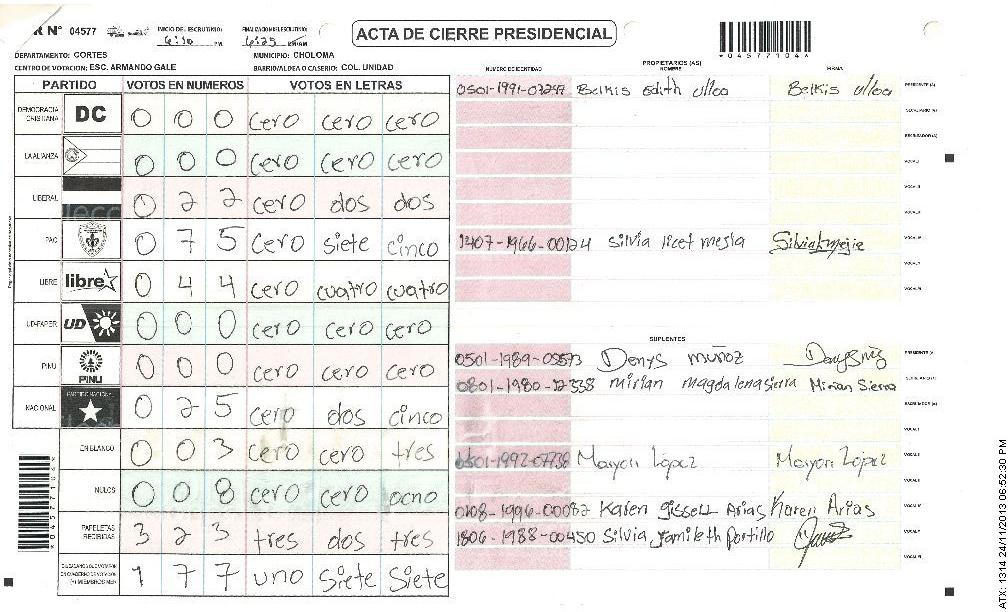 R Nº 04577
INICIO DEL ESCRUTINIO: 6:10 PM
FINALIZACION DEL ESCRUTINIO: 6:25 PM/AM
ACTA DE CIERRE PRESIDENCIAL
*0457710 4*
DEPARTAMENTO: CORTES MUNICIPIO: CHOLOMA
CENTRO DE VOTACION: ESC. ARMANDO GALE BARRIO/ALDEA O CASERIO: COL. UNIDAD
PARTIDO VOTOS EN NUMEROS VOTOS EN LETRAS
DEMOCRACIA CRISTIANA DC 0 0 0 cero cero cero
LA ALIANZA 0 0 0 cero cero cero
LIBERAL 0 2 2 cero dos dos
PAC 0 7 5 cero siete cinco
LIBRE libre 0 4 4 cero cuatro cuatro
UD-FAPER UD 0 0 0 cero cero cero
PINU PINU 0 0 0 cero cero cero
NACIONAL PARTIDO NACIONAL 0 2 5 cero dos cinco
EN BLANCO 0 0 3 cero cero tres
NULOS 0 0 8 cero cero ocho
PAPELETAS RECIBIDAS 3 2 3 tres dos tres
CIUDADANOS QUE VOTARON EN CUADERNO DE VOTACION (+) MIEMBROS MER 1 7 7 uno siete siete
PROPIETARIOS (AS)
NUMERO DE IDENTIDAD NOMBRE FIRMA
Belkis Edith Ulloa Belkis Ulloa PRESIDENTE (A)
SECRETARIO (A)
ESCRUTADOR (A)
VOCAL I
VOCAL II
1407-1966-00124 Silvia licet mejia Silvia L mejia
SUPLENTES
0501-1989-05573 Denys muñoz PRESIDENTE (A)
0801-1980-12338 mirian magdalena sierra Mirian Sierra SECRETARIO (A)
ESCRUTADOR (A)
Mayori López Mayori López
0108-1996-00082 Karen Gissell Arias Karen Arias
1806-1988-00450 Silvia Yamileth Portillo
*0457710 4*
ATX: 1314 24/11/2013 06:52:30 PM